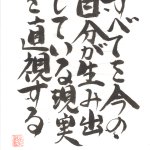 すべてを今の
自分が生み出
している現実
と直視する